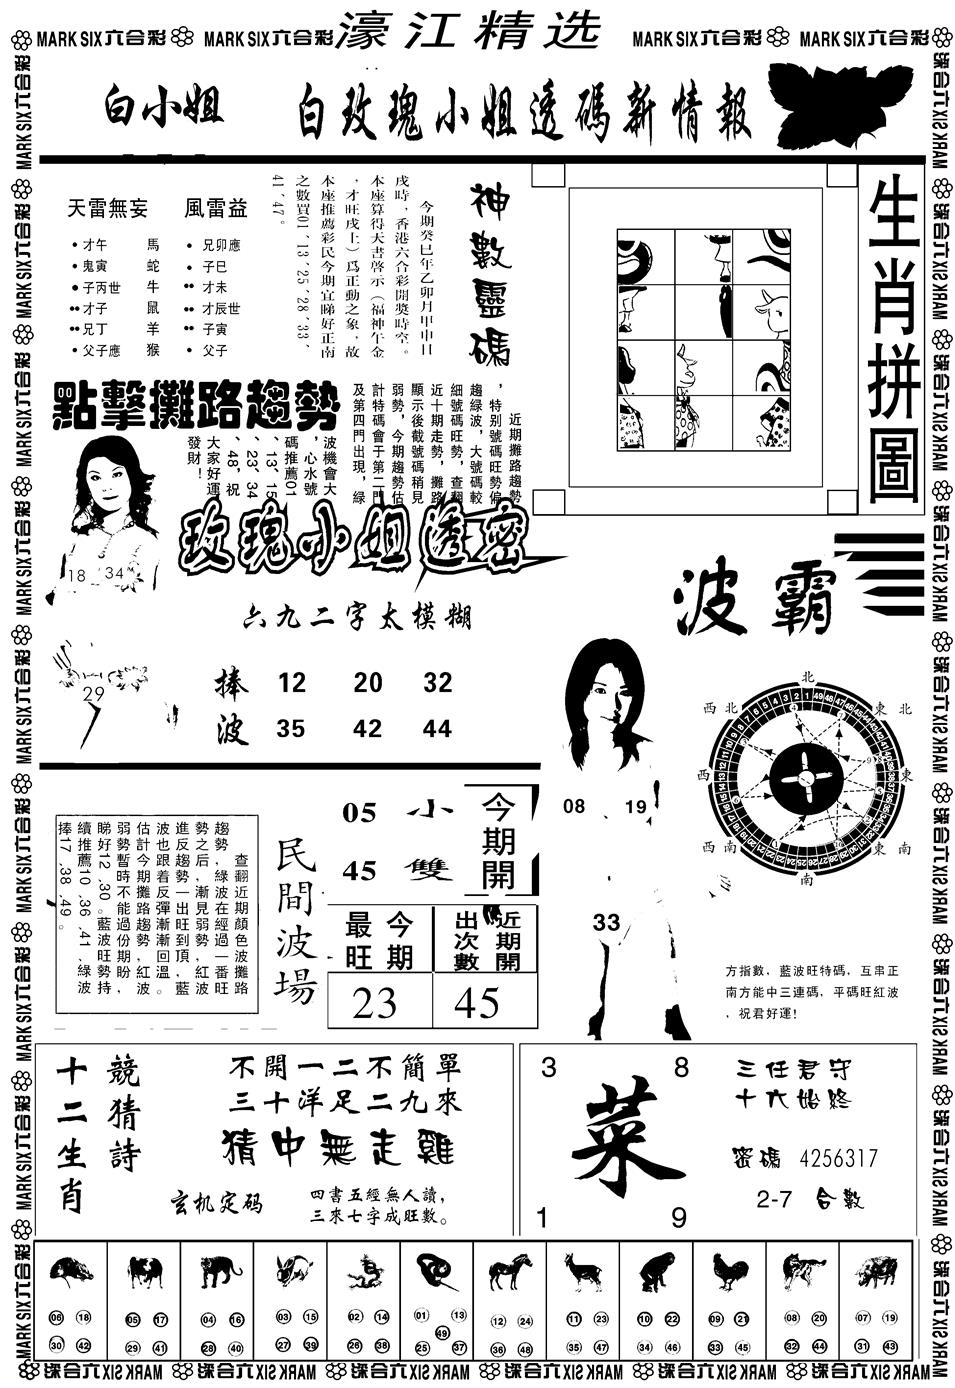 濠江精选
MARK SIX 六合彩 MARK SIX 六合彩 MARK SIX 六合彩 MARK SIX 六合彩
白小姐 白玫瑰小姐透碼新情報
天雷無妄 風雷益
才午 馬 兄卯應
鬼寅 蛇 子巳
子丙世 牛 才未
才子 鼠 才辰世
兄丁 羊 子寅
父子應 猴 父子
神數靈碼
今期癸巳年乙卯月甲申日
戌時，香港六合彩開獎時空。
本座算得天書啓示（福神午金
，才旺戌土）爲正動之象，故
本座推薦彩民今期宜睇好正南
之數買01、13、25、28、33、
41、47。
生肖拼圖
點擊攤路趨勢
近期攤路趨勢
，特别號碼旺勢偏
趨綠波，大號碼較
細號碼旺勢，查翻
近十期走勢，攤路
顯示後截號碼稍見
弱勢，今期趨勢估
計特碼會于第二門
及第四門出現，綠
波機會大
，心水號
碼推薦01
、13、15
、23、34
、48，祝
大家好運
發財！
18 34
玫瑰小姐透密
六九二字太模糊
29
捧 12 20 32
波 35 42 44
波霸
08 19
33
北
東北
東
東南
南
西南
西
西北
方指數，藍波旺特碼，互串正
南方能中三連碼，平碼旺紅波
，祝君好運！
查翻近期顔色波攤路
趨勢，綠波在經過一番旺
勢之后，漸見弱勢，紅波
進反趨勢一出旺到頂，藍
波也跟着反彈漸漸回溫。
估計今期攤路趨勢紅波
弱勢暫時不能過份期盼，
睇好12、30。藍波旺勢持
續推薦10、36、41、綠波
捧17、38、49。
民間波場
05 小 今期開
45 雙
今期最旺 近期開出次數
23 45
競猜詩
十二生肖
不開一二不簡單
三十洋足二九來
猜中無走雞
玄机定码
四書五經無人讀，
三來七字成旺數。
3 8
菜
1 9
三任君守
十六始終
密碼 4256317
2-7 合數
06 18 05 17 04 16 03 15 02 14 01 13 12 24 11 23 10 22 09 21 08 20 07 19
49
30 42 29 41 28 40 27 39 26 38 25 37 36 48 35 47 34 46 33 45 32 44 31 43
MARK SIX 六合彩 MARK SIX 六合彩 MARK SIX 六合彩 MARK SIX 六合彩 MARK SIX 六合彩 MARK SIX 六合彩